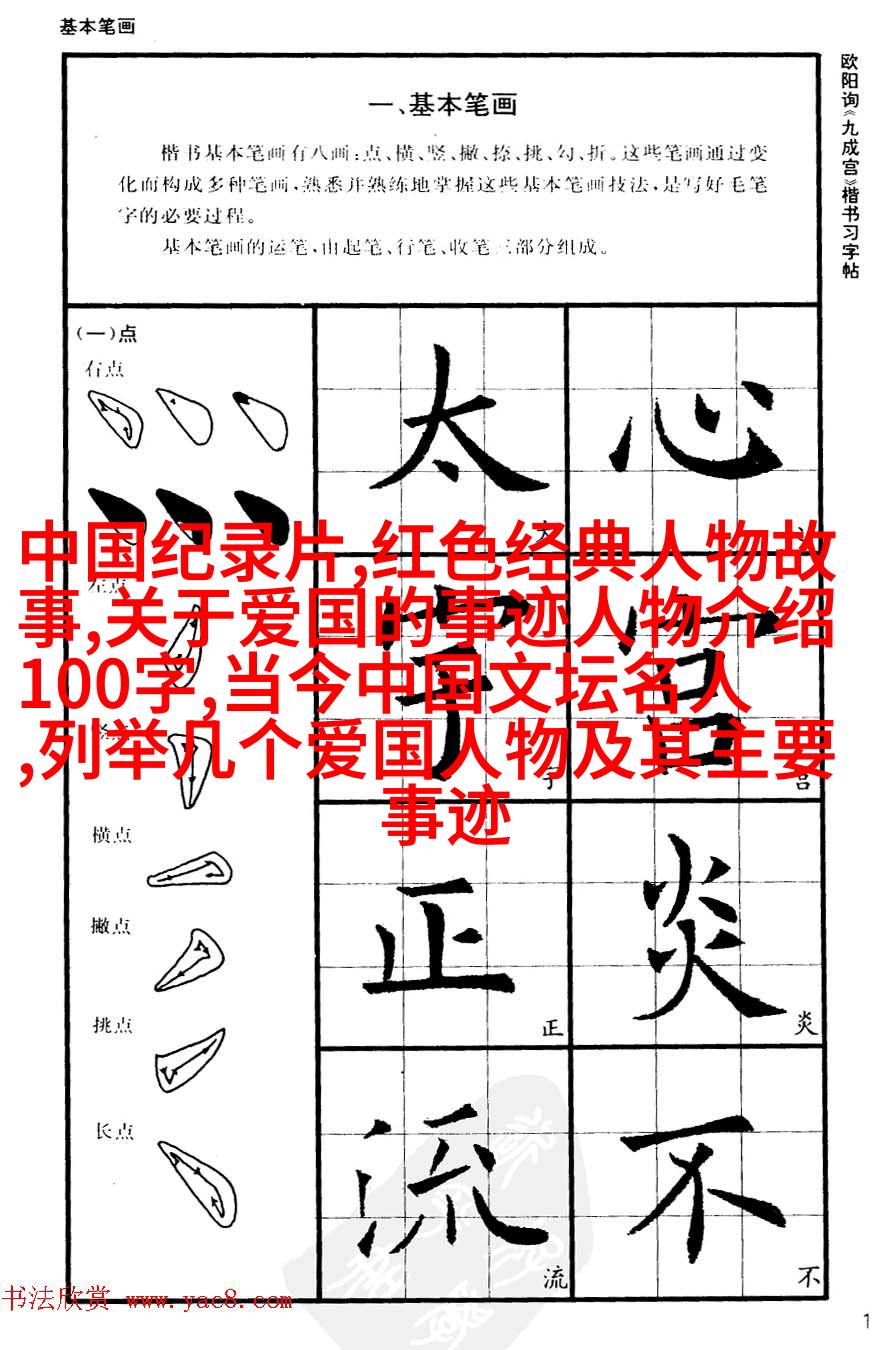 基本笔画
欧阳询《九成宫》楷书习字帖
一、基本笔画
楷书基本笔画有八画:点、横、竖、撇、捺、挑、勾、折。这些笔画通过变
化而构成多种笔画,熟悉并熟练地掌握这些基本笔画技法,是写好毛笔
字的必要过程。
基本笔画的运笔,由起笔、行笔、收笔三部分组成。
(一)点
右点
太 心
中国纪录片,红色经典人物故
事,关于爱国的事迹人物介绍
100字,当今中国文坛名人
,列举几个爱国人物及其主要
事迹
左点
字 宫
宫
横点
撇点
正 炎
正 炎
挑点
长点
流 不
流 不
书法欣赏 www.yac8.com
1